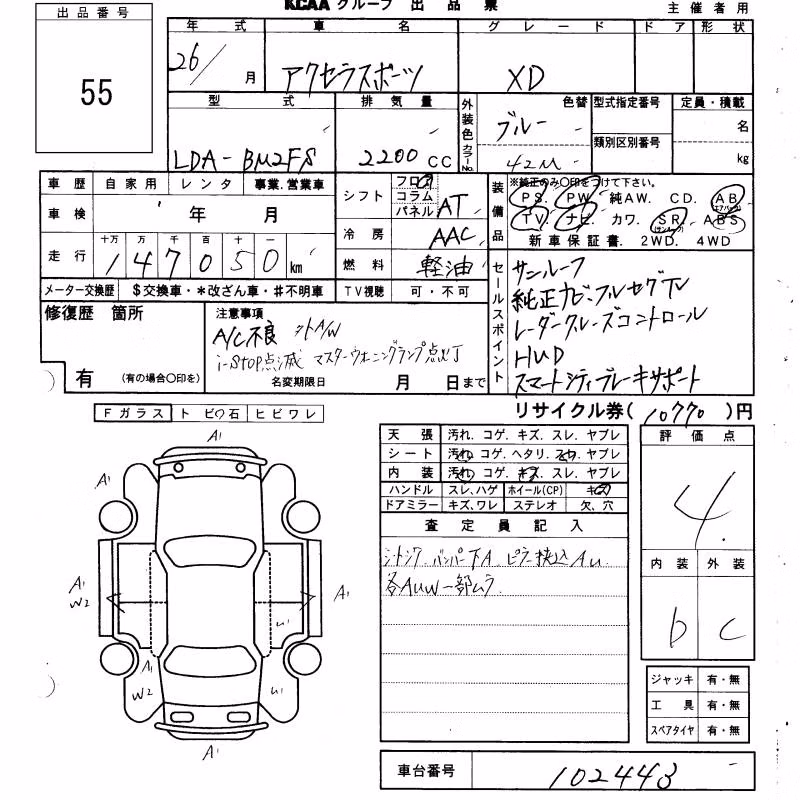 KCAA グループ 出品票
主催者用
出品番号
55
年式 車名 グレード ドア 形状
26/ 月 アクセラスポーツ XD
型式 排気量 外装色 カラーNo. 色替 型式指定番号 定員・積載
LDA-BM2FS 2200 CC ブルー 42M 類別区別番号 名 kg
車歴 自家用 レンタ 事業.営業車
車検 年 月
走行 十万 万 千 百 十 一
147050 km
メーター交換歴 $交換車・*改ざん車・#不明車
シフト フロア コラム パネル AT
冷房 AAC
燃料 軽油
TV視聴 可・不可
装備品 ※純正のみ〇印をつけて下さい。
PS. PW. 純AW. CD. AB(エアバッグ)
TV. ナビ. カワ. SR(サンルーフ). ABS
新車保証書. 2WD. 4WD
セールスポイント
サンルーフ
純正ナビ、フルセグTV
レーダークルーズコントロール
HUD
スマートシティブレーキサポート
修復歴 箇所
有 (有の場合〇印を)
注意事項
A/C不良 ソトA/W
i-STOP点滅 マスターウォーニングランプ点灯
名変期限日 月 日まで
リサイクル券( 10770 )円
Fガラス トビ石 ヒビワレ
天張 汚れ. コゲ. キズ. スレ. ヤブレ
シート 汚れ. コゲ. ヘタリ. スレ. ヤブレ
内装 汚れ. コゲ. キズ. スレ. ヤブレ
ハンドル スレ, ハゲ ホイール(CP) キズ
ドアミラー キズ, ワレ ステレオ 欠, 穴
査定員記入
シートシワ バンパー下A ピラー挟込AU
各AUW一部ムラ
評価点
4
内装 外装
b C
ジャッキ 有・無
工具 有・無
スペアタイヤ 有・無
車台番号 102443
A1
A1 A1
A1
W2
A1
U1
A1
W2
U1
A1